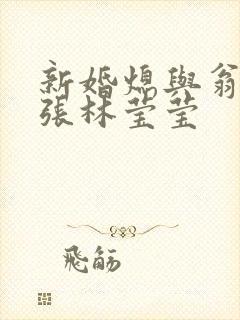 新婚熄與翁
張林莹莹
飛觞